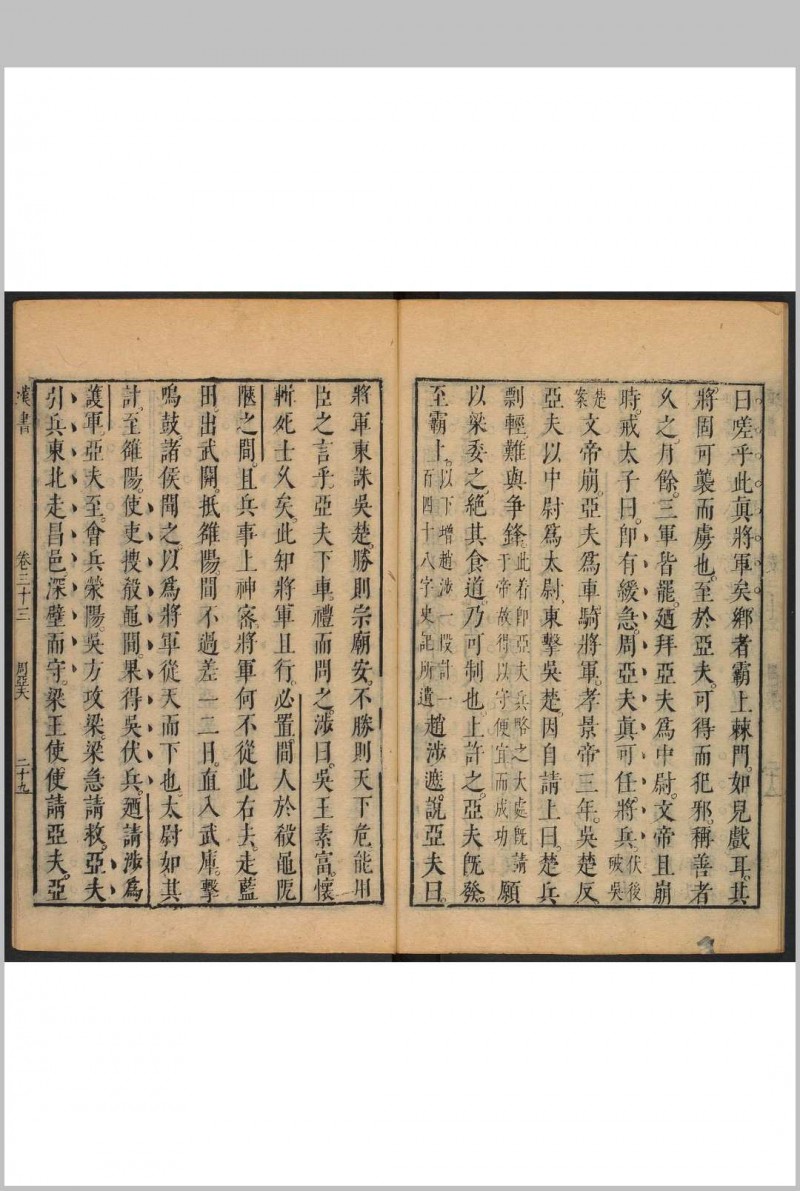 曰嗟乎此眞將軍矣鄉者霸上棘門如兒戲耳其
將固可襲而虜也至於亞夫可得而犯邪稱善者
久之月餘三軍皆罷廼拜亞夫爲中尉文帝且崩
時戒太子曰卽有緩急周亞夫眞可任將兵伏後破吳
楚案文帝崩亞夫爲車騎將軍孝景帝三年吳楚反
亞夫以中尉爲太尉東擊吳楚因自請上曰楚兵
剽輕難與爭鋒此着卽亞夫兵略之大處旣請于帝故得以守便宜而成功願
以梁委之絕其食道乃可制也上許之亞夫旣發
至霸上以下增趙涉一段計一百四十八字史記所遺趙涉遮說亞夫曰
將軍東誅吳楚勝則宗廟安不勝則天下危能用
臣之言乎亞夫下車禮而問之涉曰吳王素富懷
輯死士久矣此知將軍且行必置間人於殽黽阸
陿之間且兵事上神密將軍何不從此右去走藍
田出武關抵雒陽間不過差一二日直入武庫擊
鳴鼓諸侯聞之以爲將軍從天而下也太尉如其
計至雒陽使吏搜殽黽間果得吳伏兵廼請涉爲
護軍亞夫至會兵滎陽吳方攻梁梁急請救亞夫
引兵東北走昌邑深壁而守梁王使使請亞夫亞
漢書 卷三十三 周亞夫 二十九